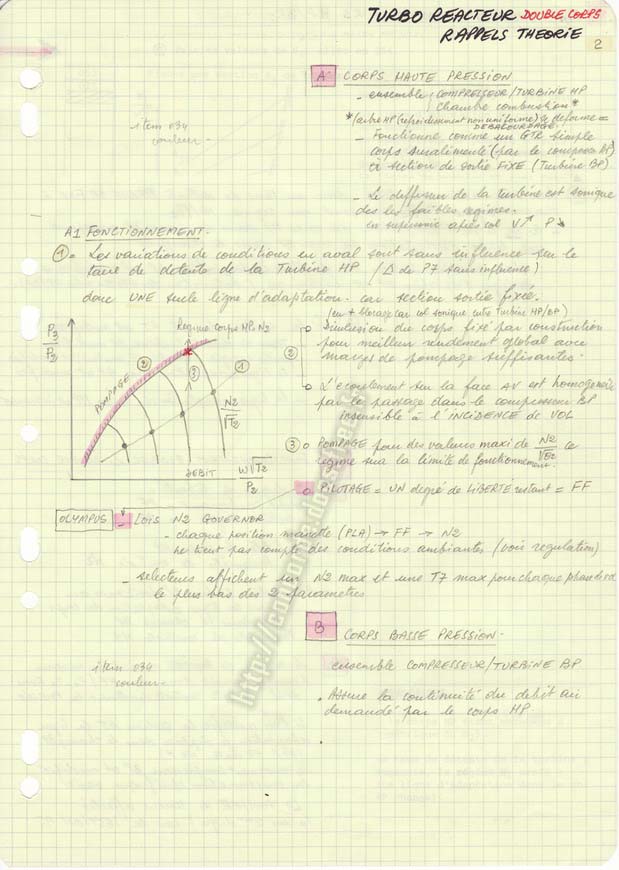 TURBO REACTEUR DOUBLE CORPS
RAPPELS THEORIE
2
A CORPS HAUTE PRESSION
- ensemble COMPRESSEUR/TURBINE HP
chambre combustion *
* (arbre HP (refroidissement non uniforme) se deforme =
DEBALOURDAGE
- Fonctionne comme un GTR simple
corps suralimenté (par le compresseur BP)
et section de sortie FIXE (Turbine BP)
item 034
couleur
- Le diffuseur de la turbine est sonique
des les faibles regimes.
en supersonic après col V↗ P↘
A1 FONCTIONNEMENT.
① Les variations de conditions en aval sont sans influence sur le
taux de detente de la Turbine HP (Δ de P7 sans influence)
donc UNE seule ligne d'adaptation. car section sortie fixée.
(en + blocage car col sonique entre Turbine HP/BP)
P3
P2
Regime Corps HP N2
POMPAGE
②
③
①
N2
√T2
DEBIT
W√T2
P2
② o inclusion du corps fixé par construction
pour meilleur rendement global avec
marges de pompage suffisantes.
o L'ecoulement sur la face AV est homogeneisé
par le passage dans le compresseur BP
insensible à l'INCIDENCE de VOL
③ o POMPAGE pour des valeurs maxi de N2/√T2 ce
regime sera la limite de fonctionnement.
o PILOTAGE = UN degré de LIBERTÉ restant = FF
OLYMPUS - LOIS N2 GOVERNOR
- chaque position manette (PLA) → FF → N2
ne tient pas compte des conditions ambiantes (voir regulation)
- selecteurs affichent un N2 max et une T7 max pour chaque phase de vol
le plus bas des 2 parametres
B CORPS BASSE PRESSION.
ensemble COMPRESSEUR/TURBINE BP
item 034
couleur
. Assure la continuité du debit air
demandé par le corps HP.